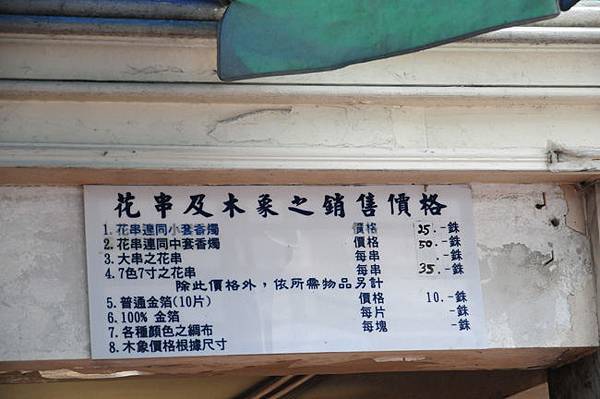 花串及木象之銷售價格
1. 花串連同小套香燭 價格 25.-銖
2. 花串連同中套香燭 價格 50.-銖
3. 大串之花串 每串 -銖
4. 7色7寸之花串 每串 35.-銖
除此價格外，依所需物品另計
5. 普通金箔(10片) 價格 10.-銖
6. 100% 金箔 每片 -銖
7. 各種顏色之綢布 每塊 -銖
8. 木象價格根據尺寸